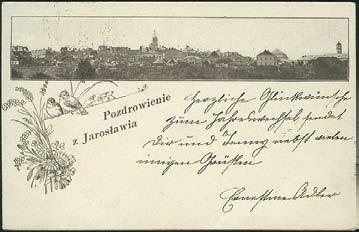 Pozdrowienie
z Jarosławia
Herzliche Glückwünsche
zum Jahreswechsel sendet
Dir und Jenny nebst vielen
innigen Grüßen
Ernestine Adler